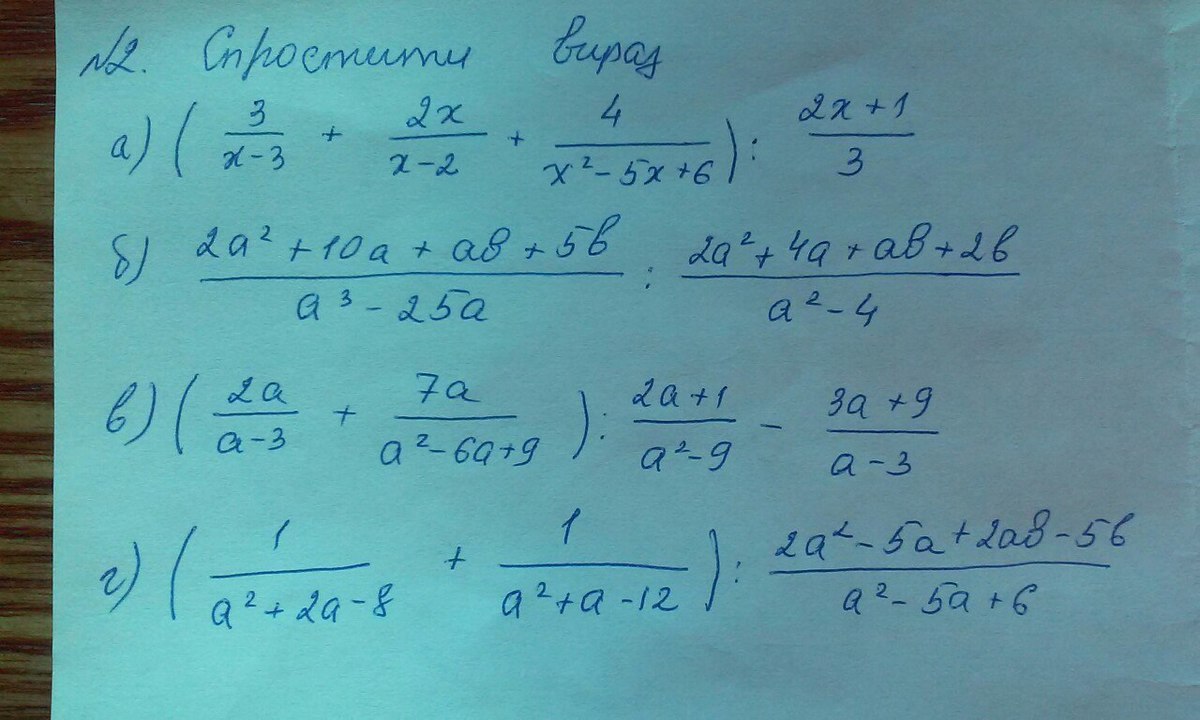 №2. Спростити вираз
а) ( 3/(x-3) + 2x/(x-2) + 4/(x²-5x+6) ) : (2x+1)/3
б) (2a²+10a+ab+5b)/(a³-25a) : (2a²+4a+ab+2b)/(a²-4)
в) ( 2a/(a-3) + 7a/(a²-6a+9) ) : (2a+1)/(a²-9) - (3a+9)/(a-3)
г) ( 1/(a²+2a-8) + 1/(a²+a-12) ) : (2a²-5a+2ab-5b)/(a²-5a+6)